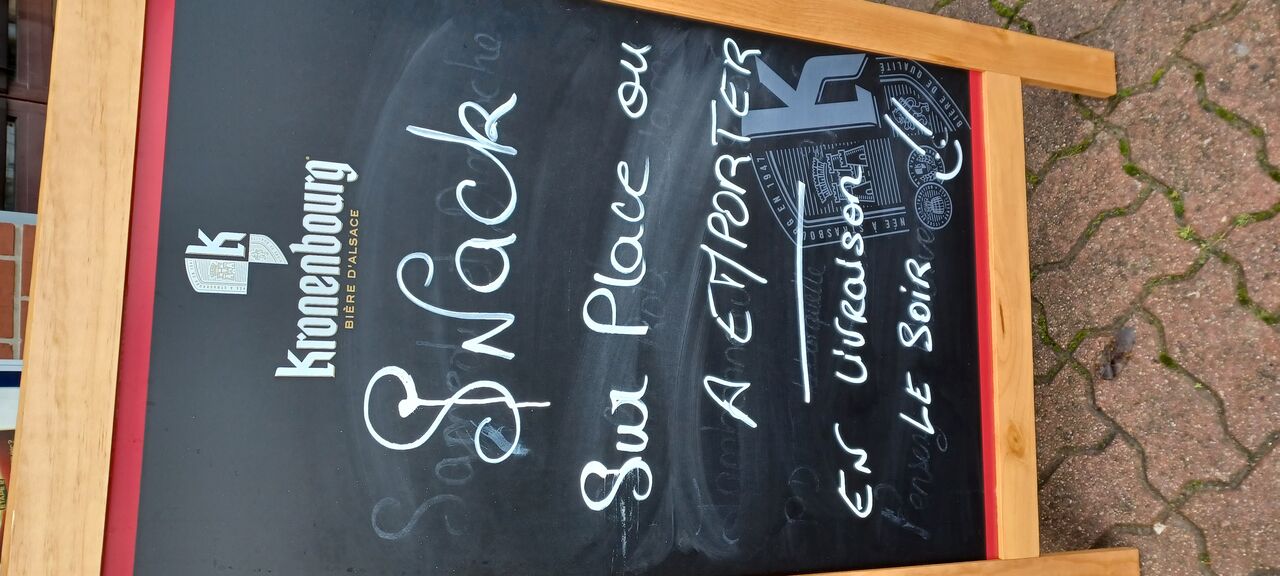 Kronenbourg
BIÈRE D'ALSACE
SNack
Sur Place ou
A EMPORTER
EN LIVRAISON
LE SOIR !!
K
BIÈRE DE QUALITÉ
EN 1947
NÉE À STRASBOURG